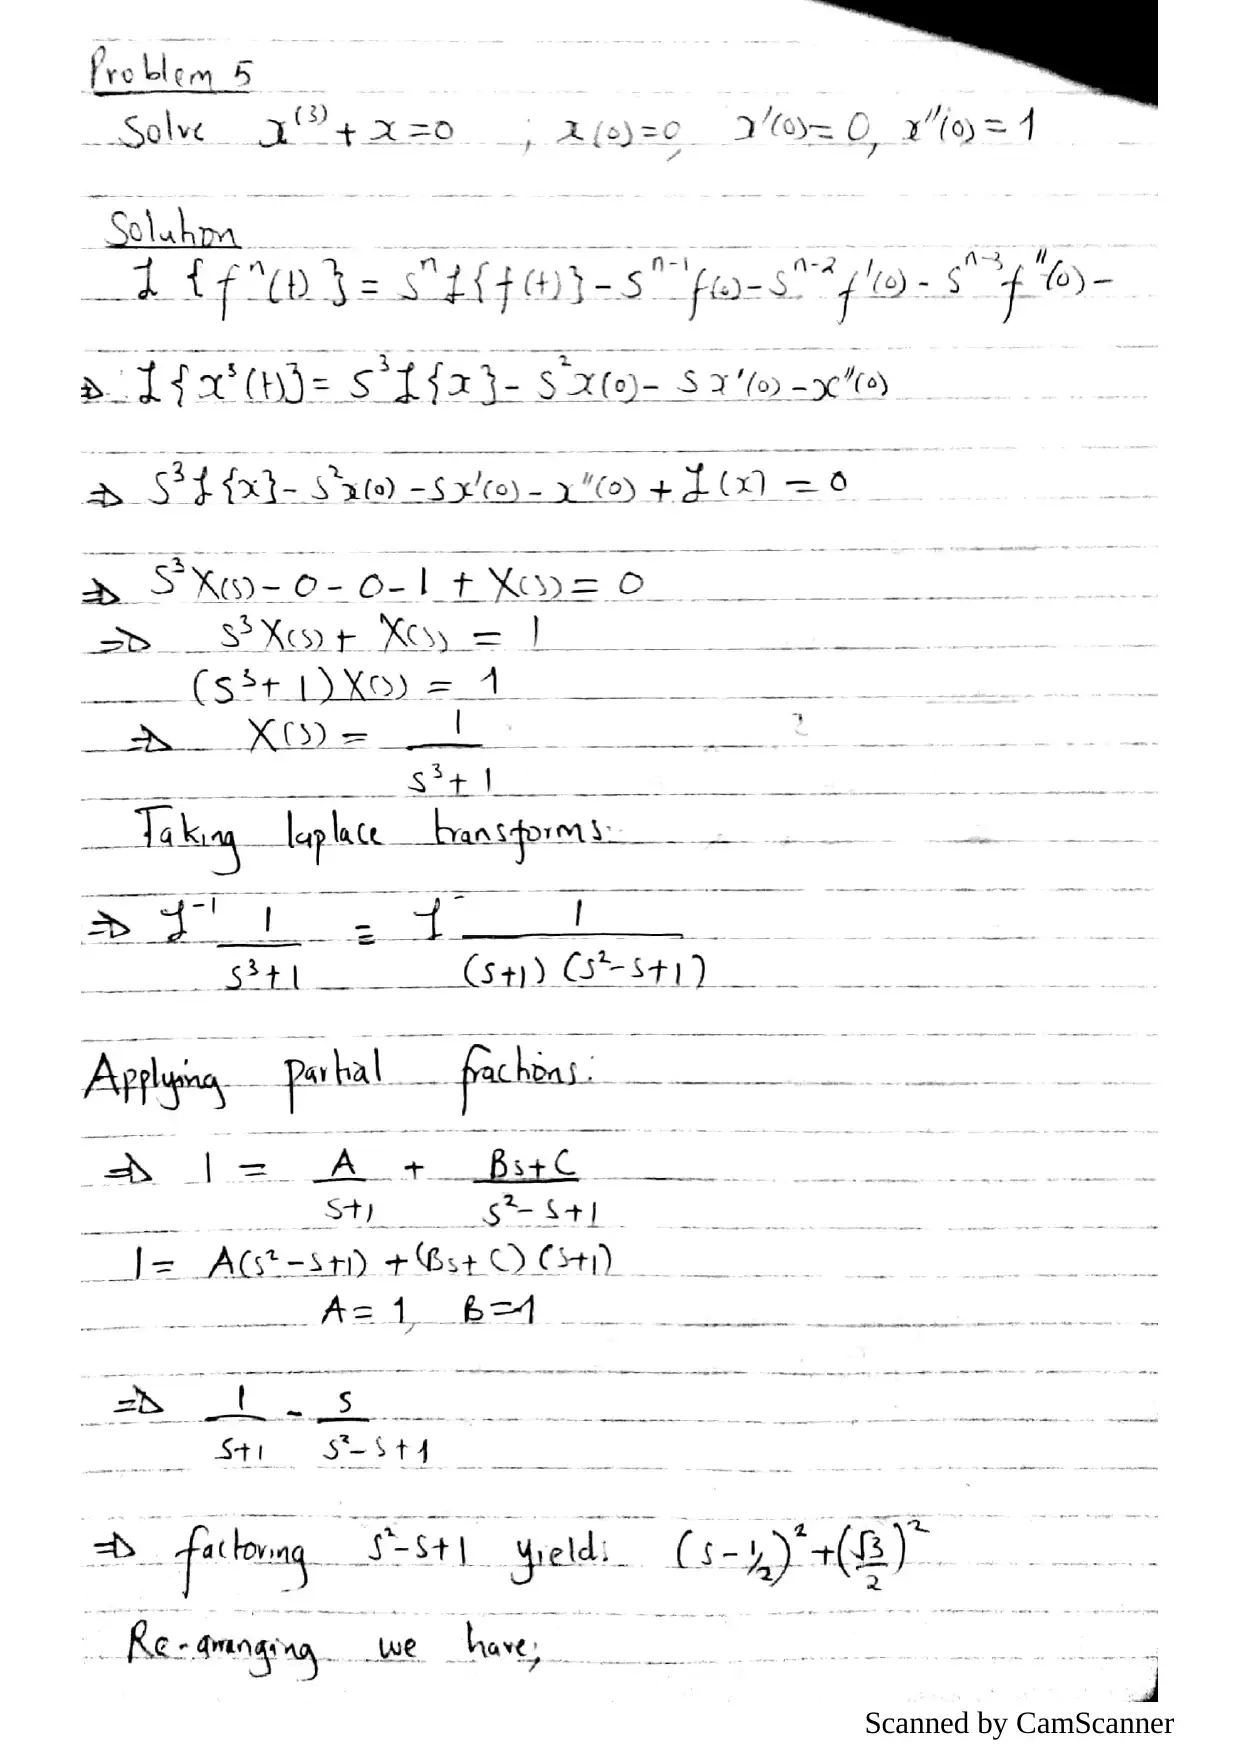 Problem 5
Solve x^(3) + x = 0 ; x(0) = 0, x'(0) = 0, x''(0) = 1
Solution
ℒ{f^n(t)} = s^n ℒ{f(t)} - s^(n-1) f(0) - s^(n-2) f'(0) - s^(n-3) f''(0) -
⇒ ℒ{x^3(t)} = s^3 ℒ{x} - s^2 x(0) - s x'(0) - x''(0)
⇒ s^3 ℒ{x} - s^2 x(0) - s x'(0) - x''(0) + ℒ(x) = 0
⇒ s^3 X(s) - 0 - 0 - 1 + X(s) = 0
⇒ s^3 X(s) + X(s) = 1
(s^3 + 1) X(s) = 1
⇒ X(s) = 1 / (s^3 + 1)
Taking laplace transforms:
⇒ ℒ^-1 1 / (s^3 + 1) = ℒ^- 1 / ((s+1)(s^2 - s + 1))
Applying partial fractions:
⇒ 1 = A / (s+1) + (Bs + C) / (s^2 - s + 1)
1 = A(s^2 - s + 1) + (Bs + C)(s+1)
A = 1, B = -1
⇒ 1 / (s+1) - s / (s^2 - s + 1)
⇒ factoring s^2 - s + 1 yields (s - 1/2)^2 + (√3/2)^2
Re-arranging we have;
Scanned by CamScanner